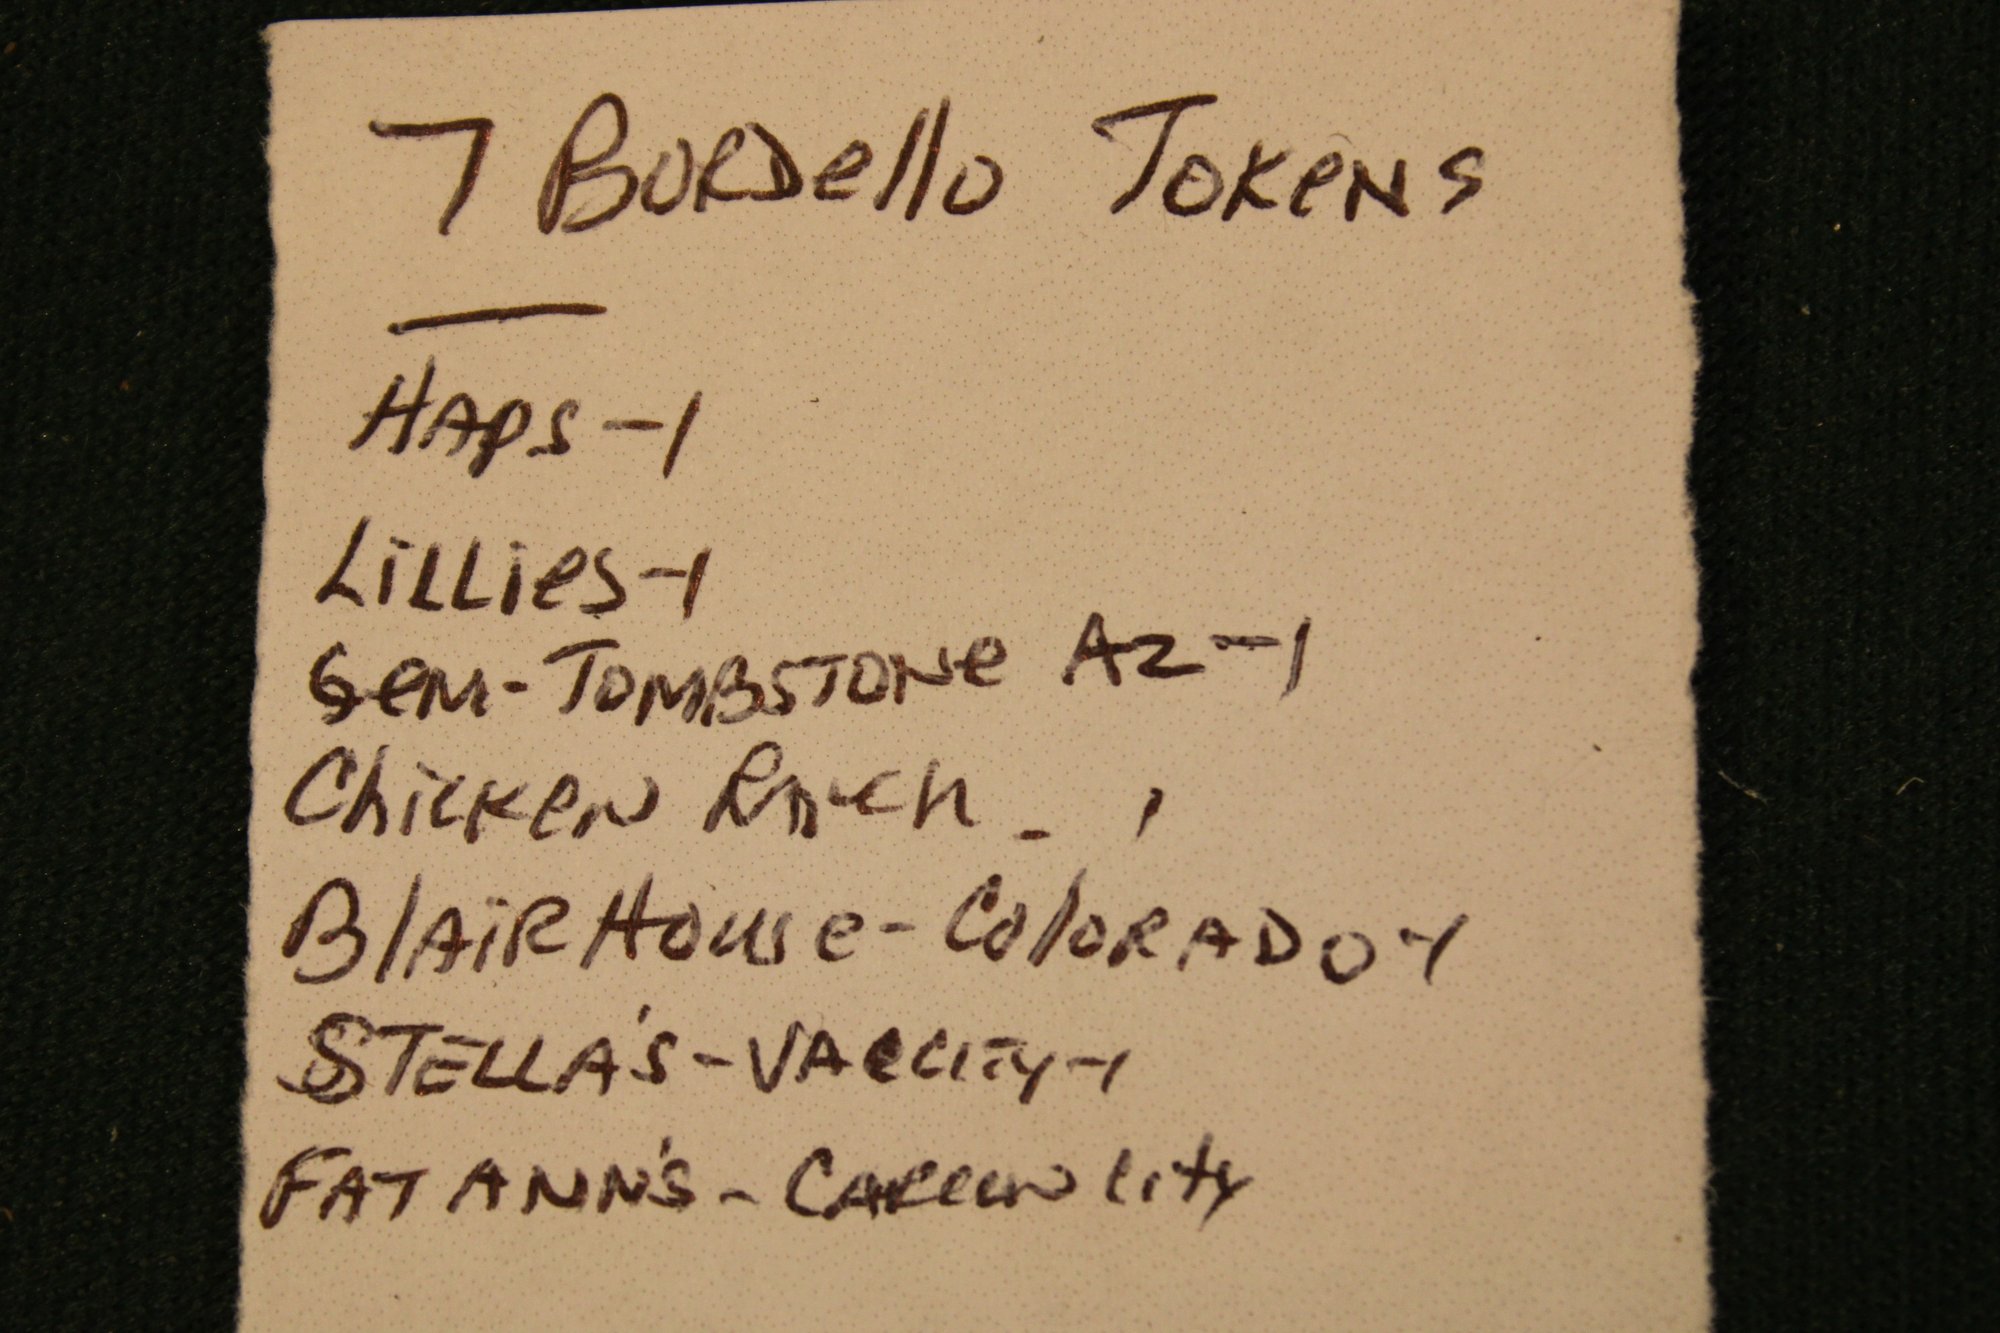 7 Bordello Tokens
Haps-1
Lillies-1
Gem-Tombstone Az-1
Chicken Ranch - 1
Blair House-Colorado-1
STELLA'S- -1
FAT ANN'S - City